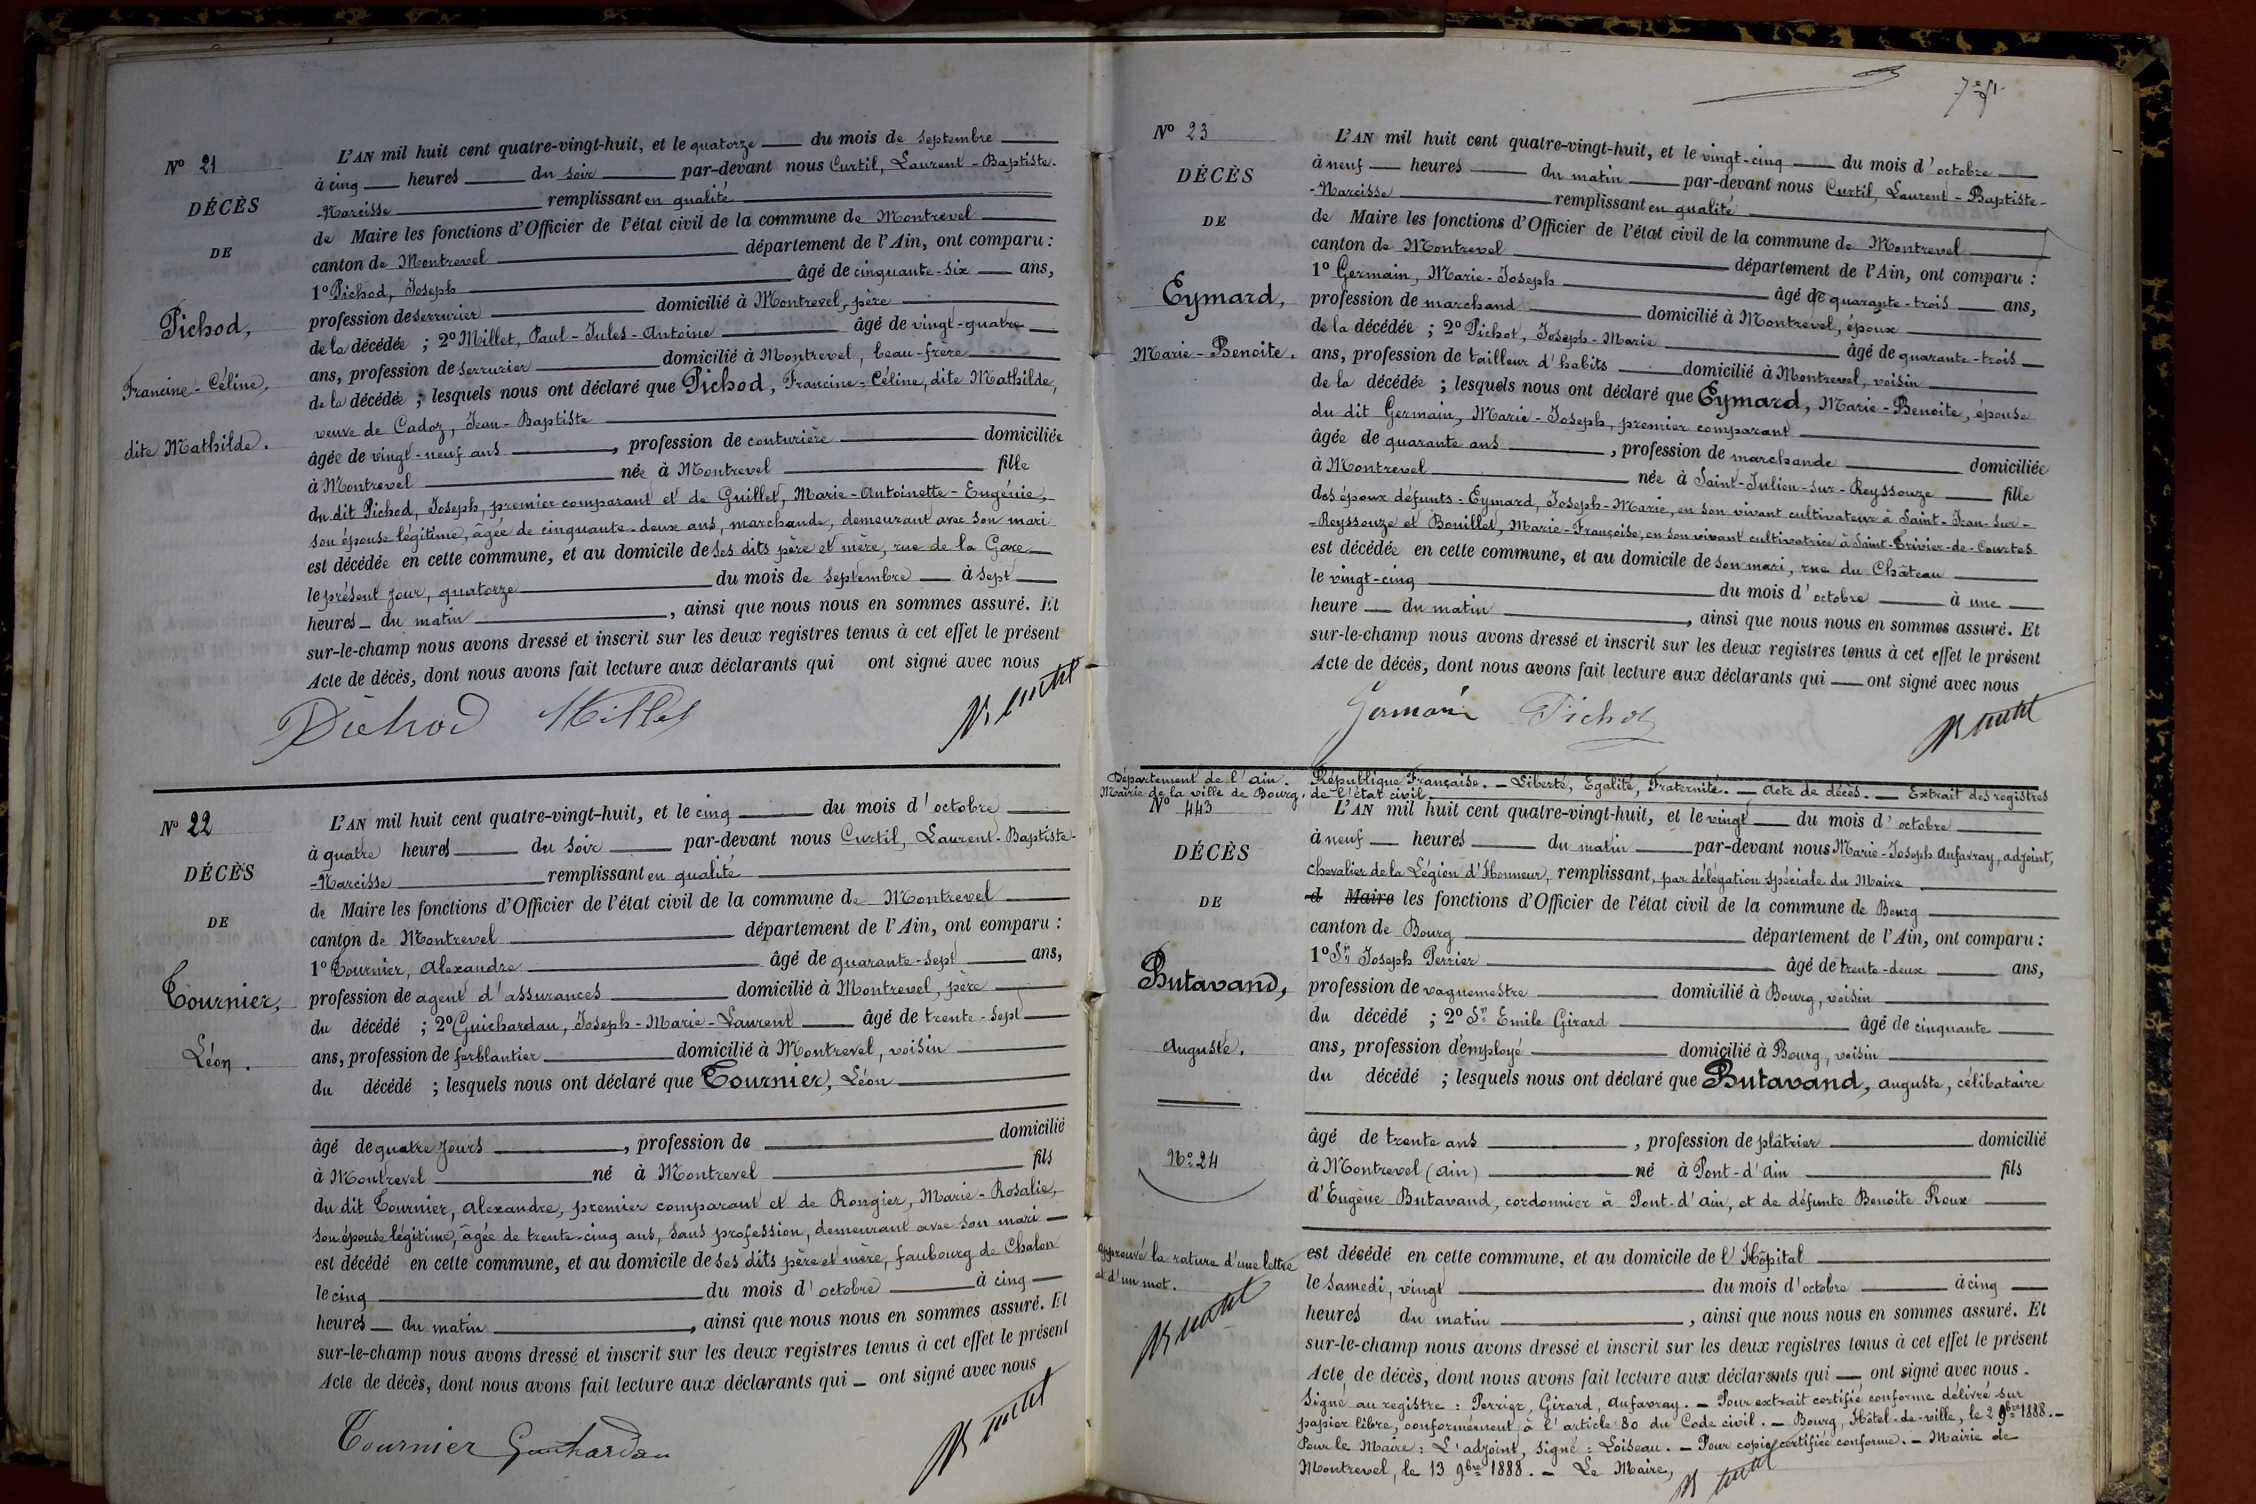 Nº 21
DÉCÈS
DE
Pichod,
Francine-Céline,
dite Mathilde.
L'AN mil huit cent quatre-vingt-huit, et le quatorze du mois de septembre
à cinq heures du soir par-devant nous Curtil, Laurent-Baptiste-
-Narcisse remplissant en qualité
de Maire les fonctions d'Officier de l'état civil de la commune de Montrevel
canton de Montrevel département de l'Ain, ont comparu :
1º Pichod, Joseph âgé de cinquante-six ans,
profession de serrurier domicilié à Montrevel, père
de la décédée ; 2º Millet, Paul-Jules-Antoine âgé de vingt-quatre
ans, profession de serrurier domicilié à Montrevel, beau-frère
de la décédée ; lesquels nous ont déclaré que Pichod, Francine-Céline, dite Mathilde,
veuve de Cadoz, Jean-Baptiste
âgée de vingt-neuf ans , profession de couturière domiciliée
à Montrevel née à Montrevel fille
du dit Pichod, Joseph, premier comparant et de Guillet, Marie-Antoinette-Eugénie,
son épouse légitime, âgée de cinquante-deux ans, marchande, demeurant avec son mari
est décédée en cette commune, et au domicile de ses dits père et mère, rue de la Gare
le présent jour, quatorze du mois de septembre à sept
heures du matin , ainsi que nous nous en sommes assuré. Et
sur-le-champ nous avons dressé et inscrit sur les deux registres tenus à cet effet le présent
Acte de décès, dont nous avons fait lecture aux déclarants qui ont signé avec nous
Pichod Millet N Curtil
Nº 22
DÉCÈS
DE
Tournier,
Léon.
L'AN mil huit cent quatre-vingt-huit, et le cinq du mois d'octobre
à quatre heures du soir par-devant nous Curtil, Laurent-Baptiste-
-Narcisse remplissant en qualité
de Maire les fonctions d'Officier de l'état civil de la commune de Montrevel
canton de Montrevel département de l'Ain, ont comparu :
1º Tournier, Alexandre âgé de quarante-sept ans,
profession de agent d'assurances domicilié à Montrevel, père
du décédé ; 2º Guichardan, Joseph-Marie-Laurent âgé de trente-sept
ans, profession de ferblantier domicilié à Montrevel, voisin
du décédé ; lesquels nous ont déclaré que Tournier, Léon
âgé de quatre jours , profession de domicilié
à Montrevel né à Montrevel fils
du dit Tournier, Alexandre, premier comparant et de Rongier, Marie-Rosalie,
son épouse légitime, âgée de trente-cinq ans, sans profession, demeurant avec son mari
est décédé en cette commune, et au domicile de ses dits père et mère, faubourg de Chalon
le cinq du mois d'octobre à cinq
heures du matin , ainsi que nous nous en sommes assuré. Et
sur-le-champ nous avons dressé et inscrit sur les deux registres tenus à cet effet le présent
Acte de décès, dont nous avons fait lecture aux déclarants qui ont signé avec nous
Tournier Guichardan N Curtil
Nº 23
DÉCÈS
DE
Eymard,
Marie-Benoite.
L'AN mil huit cent quatre-vingt-huit, et le vingt-cinq du mois d'octobre
à neuf heures du matin par-devant nous Curtil, Laurent-Baptiste-
-Narcisse remplissant en qualité
de Maire les fonctions d'Officier de l'état civil de la commune de Montrevel
canton de Montrevel département de l'Ain, ont comparu :
1º Germain, Marie-Joseph âgé de quarante-trois ans,
profession de marchand domicilié à Montrevel, époux
de la décédée ; 2º Pichot, Joseph-Marie âgé de quarante-trois
ans, profession de tailleur d'habits domicilié à Montrevel, voisin
de la décédée ; lesquels nous ont déclaré que Eymard, Marie-Benoite, épouse
du dit Germain, Marie-Joseph, premier comparant
âgée de quarante ans , profession de marchande domiciliée
à Montrevel née à Saint-Julien-sur-Reyssouze fille
des époux défunts - Eymard, Joseph-Marie, en son vivant cultivateur à Saint-Jean-sur-
-Reyssouze et Bouillet, Marie-Françoise, en son vivant cultivatrice à Saint-Trivier-de-Courtes
est décédée en cette commune, et au domicile de son mari, rue du Château
le vingt-cinq du mois d'octobre à une
heure du matin , ainsi que nous nous en sommes assuré. Et
sur-le-champ nous avons dressé et inscrit sur les deux registres tenus à cet effet le présent
Acte de décès, dont nous avons fait lecture aux déclarants qui ont signé avec nous
Germain Pichot N Curtil
Département de l'Ain. République Française. - Liberté, Egalité, Fraternité. - Acte de décès. - Extrait des registres
Mairie de la ville de Bourg. de l'état civil.
Nº 443
DÉCÈS
DE
Butavand,
Auguste.
Nº 24
Approuvé la rature d'une lettre
et d'un mot.
N Curtil
L'AN mil huit cent quatre-vingt-huit, et le vingt du mois d'octobre
à neuf heures du matin par-devant nous Marie-Joseph Aufavray, adjoint,
chevalier de la Légion d'Honneur, remplissant, par délégation spéciale du Maire
d Maire les fonctions d'Officier de l'état civil de la commune de Bourg
canton de Bourg département de l'Ain, ont comparu :
1º Sr Joseph Perrier âgé de trente-deux ans,
profession de vaguemestre domicilié à Bourg, voisin
du décédé ; 2º Sr Emile Girard âgé de cinquante
ans, profession d'employé domicilié à Bourg, voisin
du décédé ; lesquels nous ont déclaré que Butavand, Auguste, célibataire
âgé de trente ans , profession de plâtrier domicilié
à Montrevel (Ain) né à Pont-d'Ain fils
d'Eugène Butavand, cordonnier à Pont-d'Ain, et de défunte Benoite Roux
est décédé en cette commune, et au domicile de l'Hôpital
le samedi, vingt du mois d'octobre à cinq
heures du matin , ainsi que nous nous en sommes assuré. Et
sur-le-champ nous avons dressé et inscrit sur les deux registres tenus à cet effet le présent
Acte de décès, dont nous avons fait lecture aux déclarants qui ont signé avec nous.
Signé au registre : Perrier, Girard, Aufavray. - Pour extrait certifié conforme délivré sur
papier libre, conformément à l'article 80 du Code civil. - Bourg, Hôtel-de-ville, le 2 9bre 1888. -
Pour le Maire : L'adjoint, signé : Loiseau. - Pour copie certifiée conforme. - Mairie de
Montrevel, le 13 9bre 1888. - Le Maire,
N Curtil